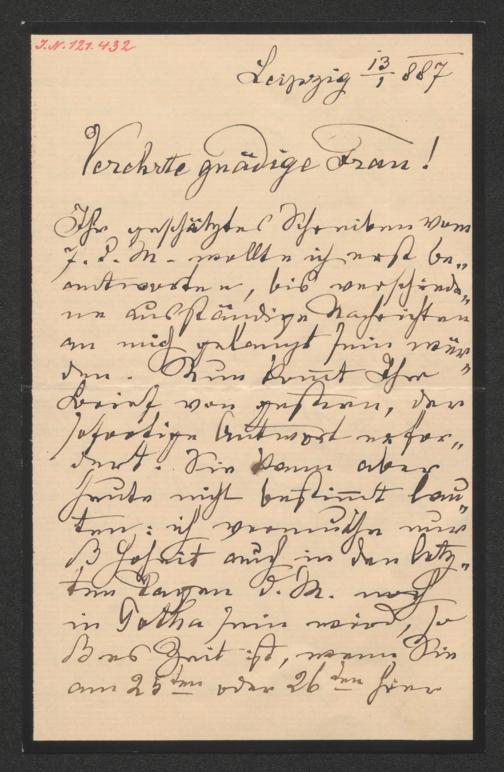 J.N. 121.432
Leipzig 13/1 887
Verehrte gnädige Frau!
Ihr geschätztes Schreiben vom
7. d. M. wollte ich erst be„
antworten, bis verschiede„
ne ausständige Nachrichten
an mich gelangt sein wür„
den. Nun kom̅t Ihr
Brief von gestern, der
sofortige Antwort erfor„
dert. Sie kann aber
heute nicht bestim̅t lau„
ten: ich vermuthe nur
ß Hoheit auch in den letz„
ten Tagen d. M. noch
in Gotha sein wird, so
ß es Zeit ist, wenn Sie
am 25ten oder 26ten hier